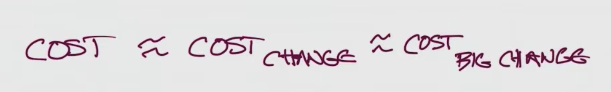 COST ≈ COST CHANGE ≈ COST BIG CHANGE